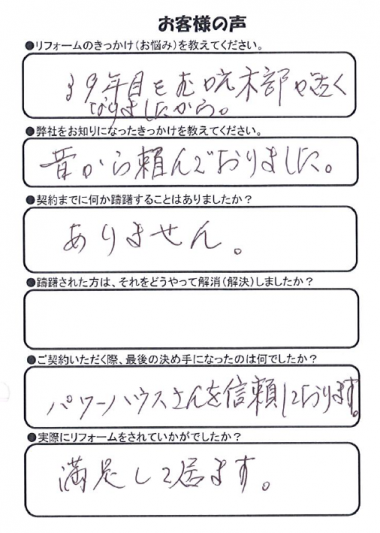 お客様の声
●リフォームのきっかけ（お悩み）を教えてください。
39年目をむかえ木部が古く
なりましたから。
●弊社をお知りになったきっかけを教えてください。
昔から頼んでおりました。
●契約までに何か躊躇することはありましたか？
ありません。
●躊躇された方は、それをどうやって解消（解決）しましたか？
●ご契約いただく際、最後の決め手になったのは何でしたか？
パワーハウスさんを信頼しております。
●実際にリフォームをされていかがでしたか？
満足して居ます。